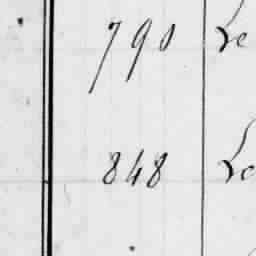 790 Le
848 Le